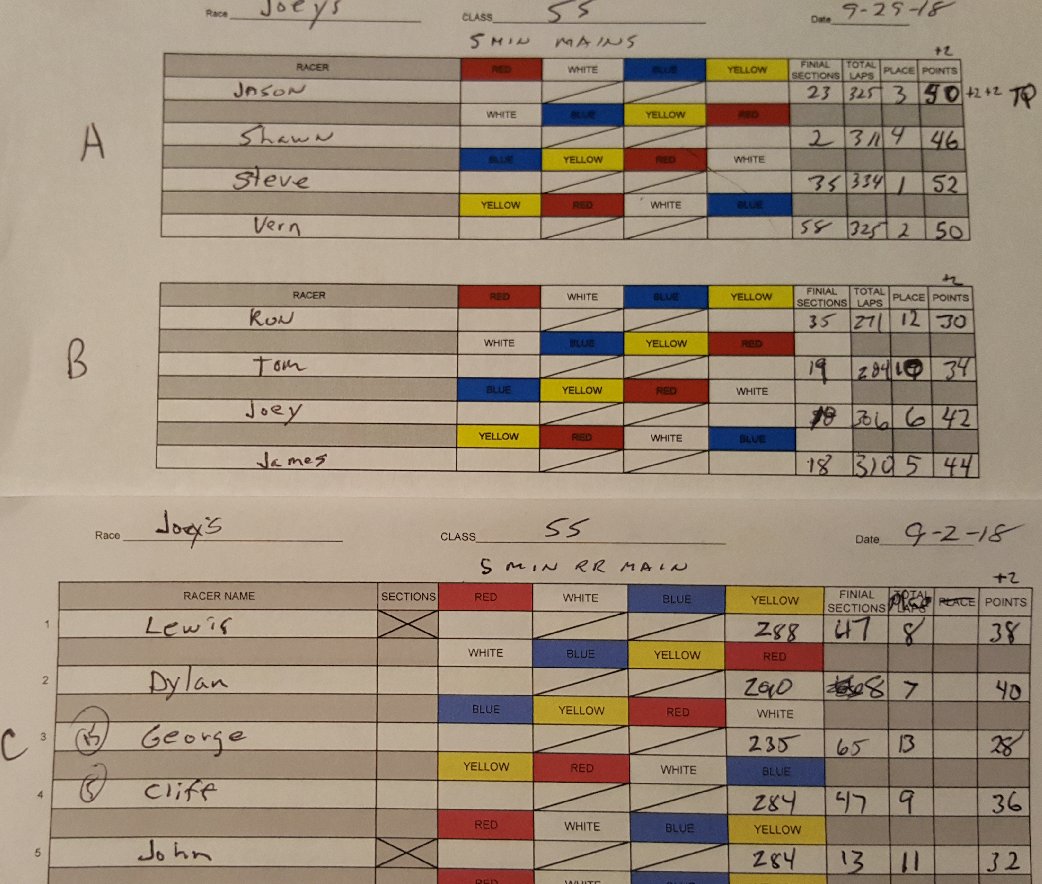 Race Joeys CLASS 5S Date 9-29-18
5 MIN MAINS
+2
RACER RED WHITE BLUE YELLOW FINIAL SECTIONS TOTAL LAPS PLACE POINTS
JASON 23 325 3 50 +2 +2 TQ
WHITE BLUE YELLOW RED
A
Shawn 2 311 4 46
BLUE YELLOW RED WHITE
Steve 35 334 1 52
YELLOW RED WHITE BLUE
Vern 58 325 2 50
+2
RACER RED WHITE BLUE YELLOW FINIAL SECTIONS TOTAL LAPS PLACE POINTS
RON 35 271 12 30
WHITE BLUE YELLOW RED
B
Tom 19 284 10 34
BLUE YELLOW RED WHITE
Joey 18 306 6 42
YELLOW RED WHITE BLUE
James 18 310 5 44
Race Joey's CLASS 5S Date 9-2-18
5 MIN RR MAIN
+2
RACER NAME SECTIONS RED WHITE BLUE YELLOW FINIAL SECTIONS TOTAL LAPS PLACE POINTS
1 Lewis 288 47 8 38
WHITE BLUE YELLOW RED
2 Dylan 290 8 7 40
BLUE YELLOW RED WHITE
C
3 George 235 65 13 28
YELLOW RED WHITE BLUE
4 Cliff 284 47 9 36
RED WHITE BLUE YELLOW
5 John 284 13 11 32
RED WHITE BLUE YELLOW